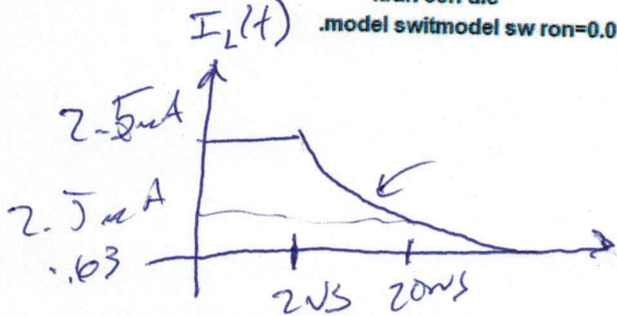 .model switmodel sw ron=0.0
I_L(t)
2.5mA
2.5mA
.63
2us 20ns